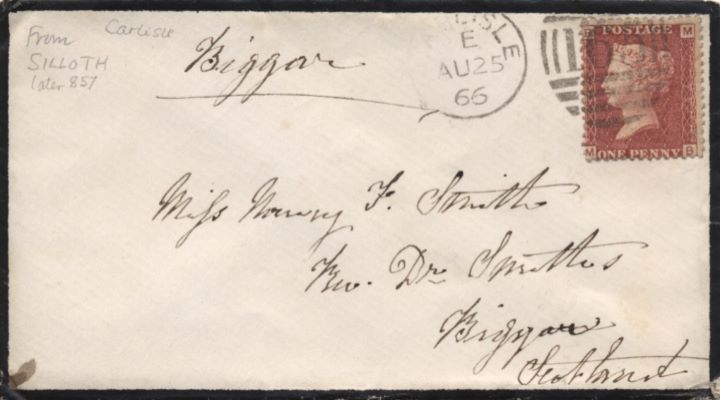 From Carlisle
SILLOTH
later 857
Biggar
LISLE
E
AU 25
66
POSTAGE
M
ONE PENNY
M B
Miss Nanny F. Smith
Rev. Dr. Smith's
Biggar
Scotland